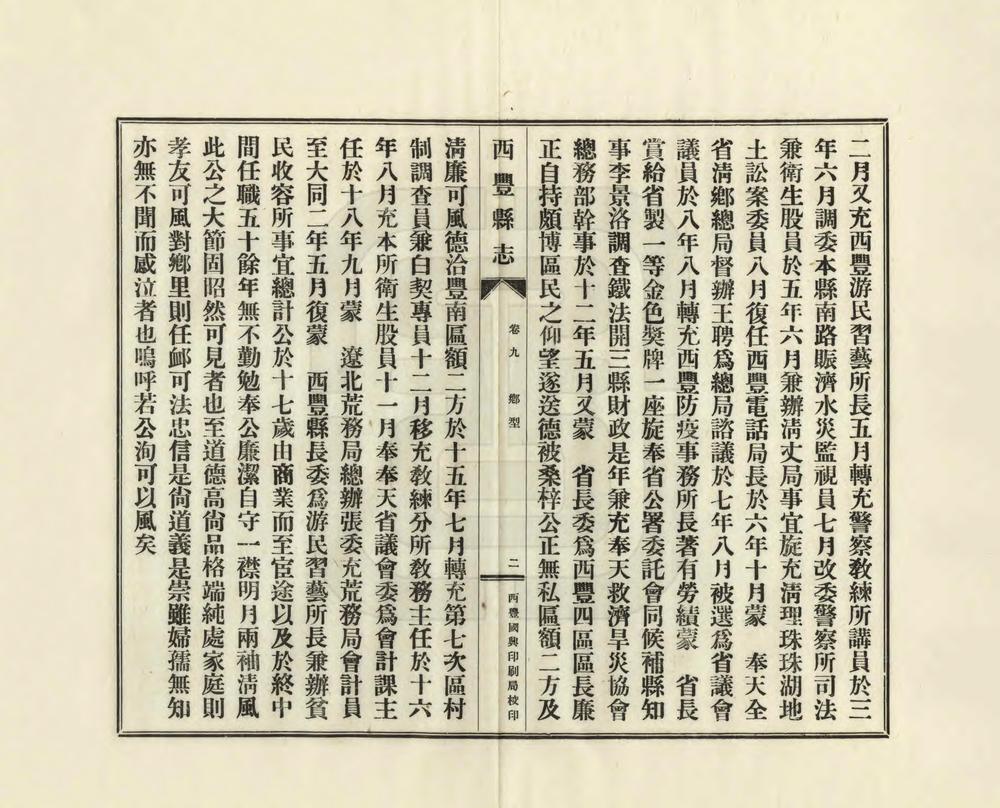 二月又充西豐游民習藝所長五月轉充警察敎練所講員於三
年六月調委本縣南路賑濟水災監視員七月改委警察所司法
兼衛生股員於五年六月兼辦清丈局事宜旋充清理珠珠湖地
土訟案委員八月復任西豐電話局長於六年十月蒙　奉天全
省清鄉總局督辦王聘爲總局諮議於七年八月被選爲省議會
議員於八年八月轉充西豐防疫事務所長著有勞績蒙　省長
賞給省製一等金色奬牌一座旋奉省公署委託會同候補縣知
事李景洛調查鐵法開三縣財政是年兼充奉天救濟旱災協會
總務部幹事於十二年五月又蒙　省長委爲西豐四區區長廉
正自持頗博區民之仰望遂送德被桑梓公正無私區額二方及
西豐縣志
卷九　鄉型
二
西豐國興印刷局校印
清廉可風德洽豐南區額二方於十五年七月轉充第七次區村
制調查員兼白契專員十二月移充敎練分所敎務主任於十六
年八月充本所衛生股員十一月奉奉天省議會委爲會計課主
任於十八年九月蒙　遼北荒務局總辦張委充荒務局會計員
至大同二年五月復蒙　西豐縣長委爲游民習藝所長兼辦貧
民收容所事宜總計公於十七歲由商業而至宦途以及於終中
間任職五十餘年無不勤勉奉公廉潔自守一襟明月兩袖清風
此公之大節固昭然可見者也至道德高尙品格端純處家庭則
孝友可風對鄉里則任䘏可法忠信是尙道義是崇雖婦孺無知
亦無不聞而感泣者也嗚呼若公洵可以風矣